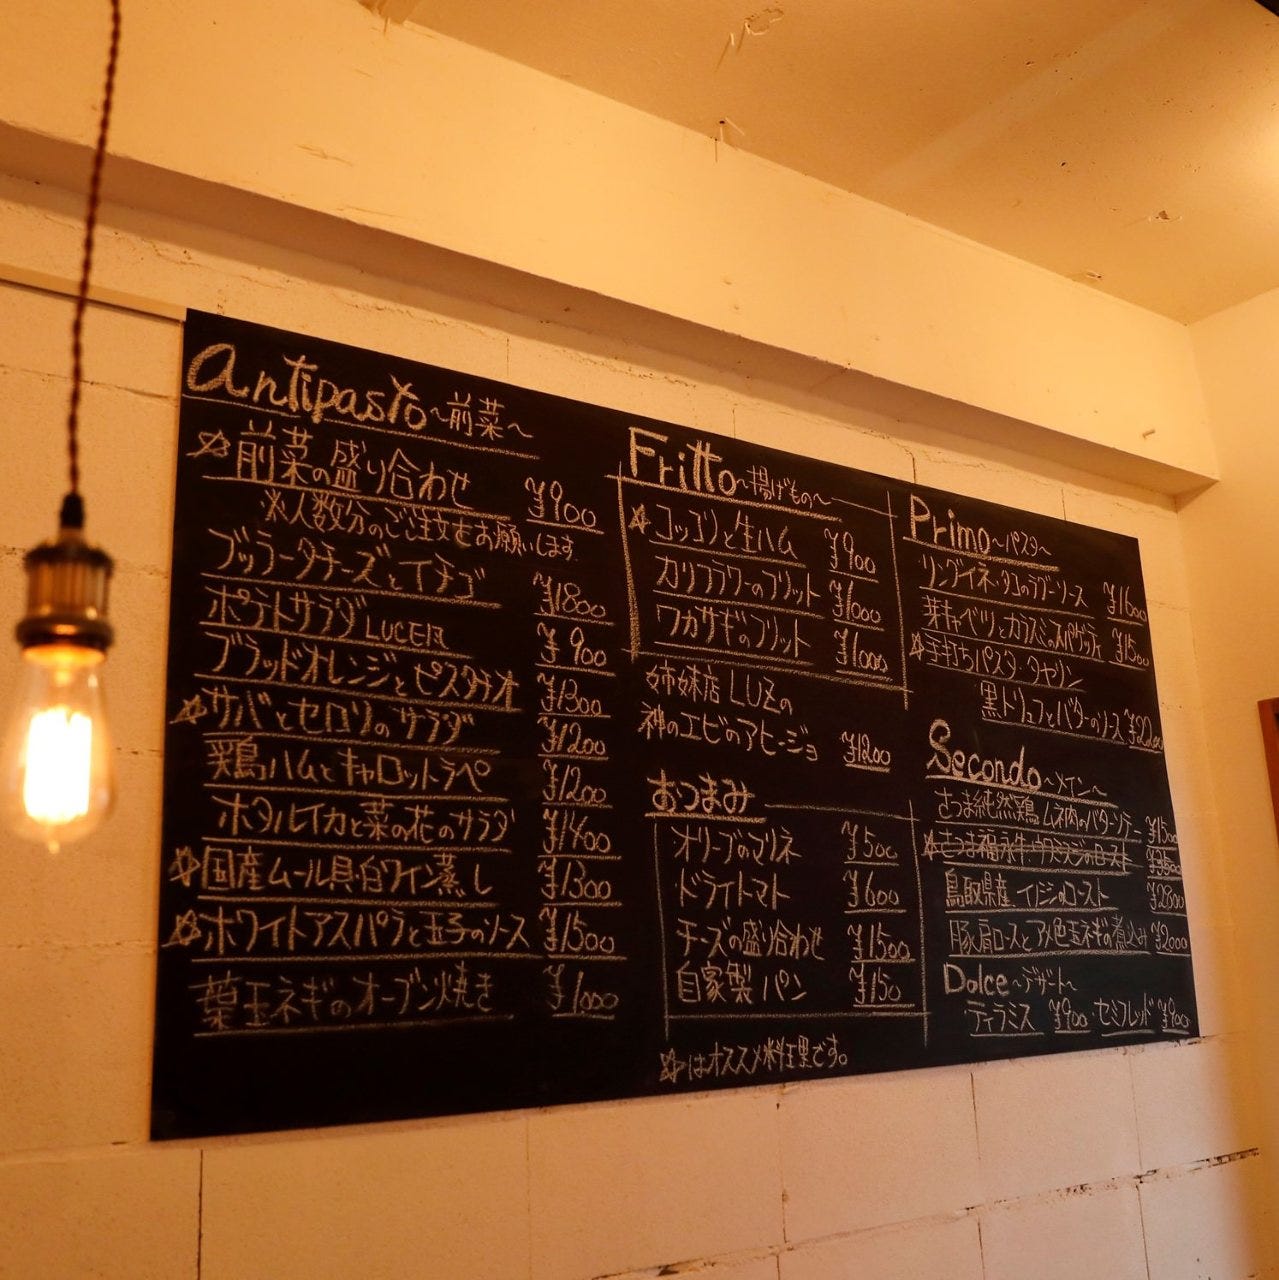 Antipasto ~前菜~
☆前菜の盛り合わせ ¥900
※人数分のご注文をお願いします
ブッラータチーズとイチゴ ¥1800
ポテトサラダ LUCE風 ¥900
ブラッドオレンジとピスタチオ ¥1300
☆サバとセロリのサラダ ¥1200
鶏ハムとキャロットラペ ¥1200
ホタルイカと菜の花のサラダ ¥1400
☆国産ムール貝・白ワイン蒸し ¥1300
☆ホワイトアスパラと玉子のソース ¥1500
葉玉ネギのオーブン焼き ¥1,000
Fritto ~揚げもの~
☆コッコリと生ハム ¥900
カリフラワーのフリット ¥1000
ワカサギのフリット ¥1000
姉妹店 LUZの
神のエビのアヒージョ ¥1200
おつまみ
オリーブのマリネ ¥500
ドライトマト ¥600
チーズの盛り合わせ ¥1500
自家製パン ¥150
☆はオススメ料理です。
Primo ~パスタ~
リングイネ・タコのラグーソース ¥1600
芽キャベツとカラスミのスパゲッティ ¥1500
☆手打ちパスタ・タヤリン
黒トリュフとバターのソース ¥2200
Secondo ~メイン~
さつま純然鶏 ムネ肉のバターソテー ¥1500
☆さつま福永牛・ウチミスジのロースト
鳥取県産 イノシシのロースト ¥2800
豚肩ロースとアメ色玉ネギの煮込み ¥2000
Dolce ~デザート~
ティラミス ¥900 ・セミフレッド ¥900